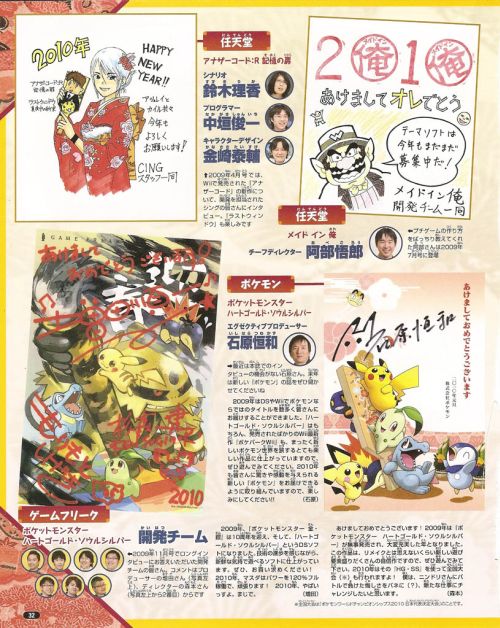 2010年
HAPPY
NEW
YEAR!!
アナザーコード:R
記憶の扉
ラストウィンドウ
真夜中の約束
アシュレイと
カイル共々
今年も
よろしく
お願いします!
CING
スタッフ一同
任天堂
アナザーコード:R 記憶の扉
シナリオ
鈴木理香
プログラマー
中垣俊一
キャラクターデザイン
金崎泰輔
⬆2009年4月号では、
Wiiで発売された『アナ
ザーコード』の新作につ
いて、開発を担当された
シングの皆さんにインタ
ビュー。『ラストウィン
ドウ』も楽しみです
2俺1俺
あけましてオレでとう
テーマソフトは
今年もまだまだ
募集中だ!
メイドイン俺
開発チーム一同
任天堂
メイド イン 俺
チーフディレクター
阿部悟郎
⬅プチゲームの作り方
をばっちり教えてくれ
た阿部さんは2009年
7月号に登場
ポケモン
ポケットモンスター
ハートゴールド・ソウルシルバー
エグゼクティブプロデューサー
石原恒和
⬅最近は本誌でのイン
タビューの機会がない石原さん。来年
は新しい『ポケモン』の話をぜひ聞かせ
てくださいね
2009年はDSやWiiでポケモンな
らではのタイトルを数多く皆さんに
お届けすることができました。『ハ
ートゴールド・ソウルシルバー』はも
ちろん、発売されたばかりのWii最新
作『ポケパークWii』も、まったく新
しいポケモン世界を旅するとても楽
しい作品に仕上がっていますので、
ぜひ遊んでみてください。2010年
も皆さんに驚きや感動を与えられる
新しい『ポケモン』をお届けできる
ように取り組んでいますので、楽し
みにしてください!! (石原)
あけましておめでとうございます
二〇一〇年元旦
株式会社ポケモン
石原恒和
GAME FREAK
あけまして
おめでとう
ございます
2010
ゲームフリーク
ポケットモンスター
ハートゴールド・ソウルシルバー
開発チーム
⬅2009年11月号でロングイン
タビューにお答えいただいた開発
チームの皆さん。コメントはプロ
デューサーの増田さん(写真左
上)、ディレクターの森本さん
(写真左上から2番目)からです
2009年、『ポケットモンスター 金・
銀』は10周年を迎え、そして、『ハートゴー
ルド・ソウルシルバー』というDSソフ
トになりました。技術の進歩を感じながら、
新鮮な気持で遊べるソフトに仕上がってい
ます。ぜひ、お買い求めください!
2010年、マスダはパワーを120%フル
稼働で、頑張ります! 2010年、やばい
っすよ。まじで。 (増田)
あけましておめでとうございます! 2009年は『ポ
ケットモンスター ハートゴールド・ソウルシルバー』
が無事発売され、大変充実した年となりました。
この作品は、リメイクとは思えないくらい新しい遊び
要素盛りだくさんの自信作ですので、ぜひ遊んでみて
下さい。2010年はその『HG・SS』を使って全国大
会(※)も行われますよ! 僕は、ニンドリにみんなに
バトルで負けた悔しさをバネに(?)、新たな仕事にチ
ャレンジしたいと思います。 (森本)
※全国大会は「ポケモンワールドチャンピオンシップス2010 日本代表決定大会」のことです。
32